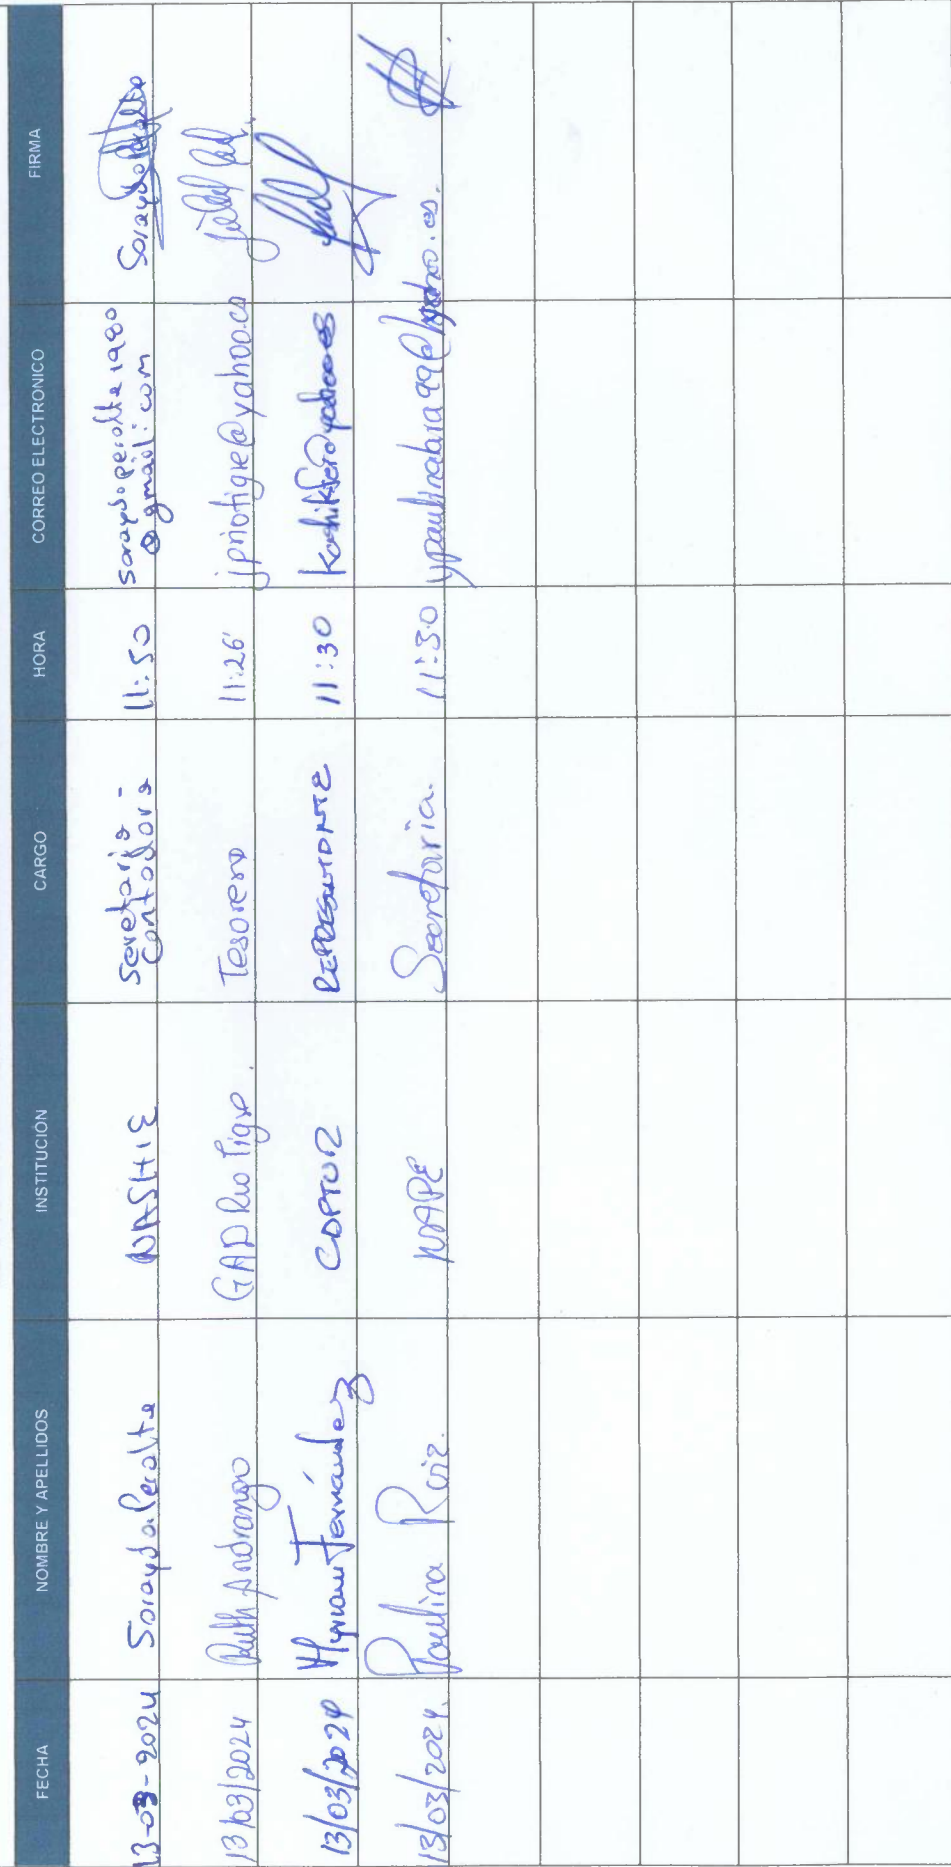 FECHA NOMBRE Y APELLIDOS INSTITUCIÓN CARGO HORA CORREO ELECTRONICO FIRMA
13-03-2024 Sorayda Peralta NASHIE Secretaria - 11:50 soraydaperalta1980
Contadora @gmail.com
13/03/2024 Ruth Andrango GAD Rio Tigre. Tesorero 11:26 jpriotigre@yahoo.co
13/03/2024 Myriam Fernández COPTUR REPRESENTANTE 11:30
13/03/2024. Paulina Ruiz. WAPE Secretaria. 11:30 ypaulinabara99@yahoo.es.